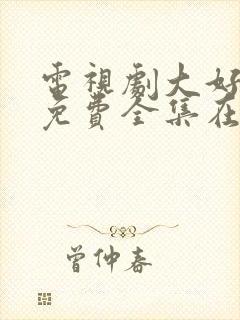 電視劇大好
免費全集在
曾仲春